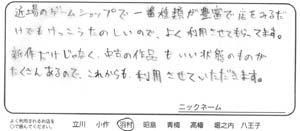 近場のゲームショップで一番種類が豊富で店をみるだ
けでもけっこうたのしいので、よく利用させてもらってます。
新作だけじゃなく、中古の作品もいい状態のものが
たくさんあるので、これからも利用させていただきます。
ニックネーム
よく利用されるお店を
○で囲んでください。
立川 小作 羽村 昭島 青梅 高幡 堀之内 八王子